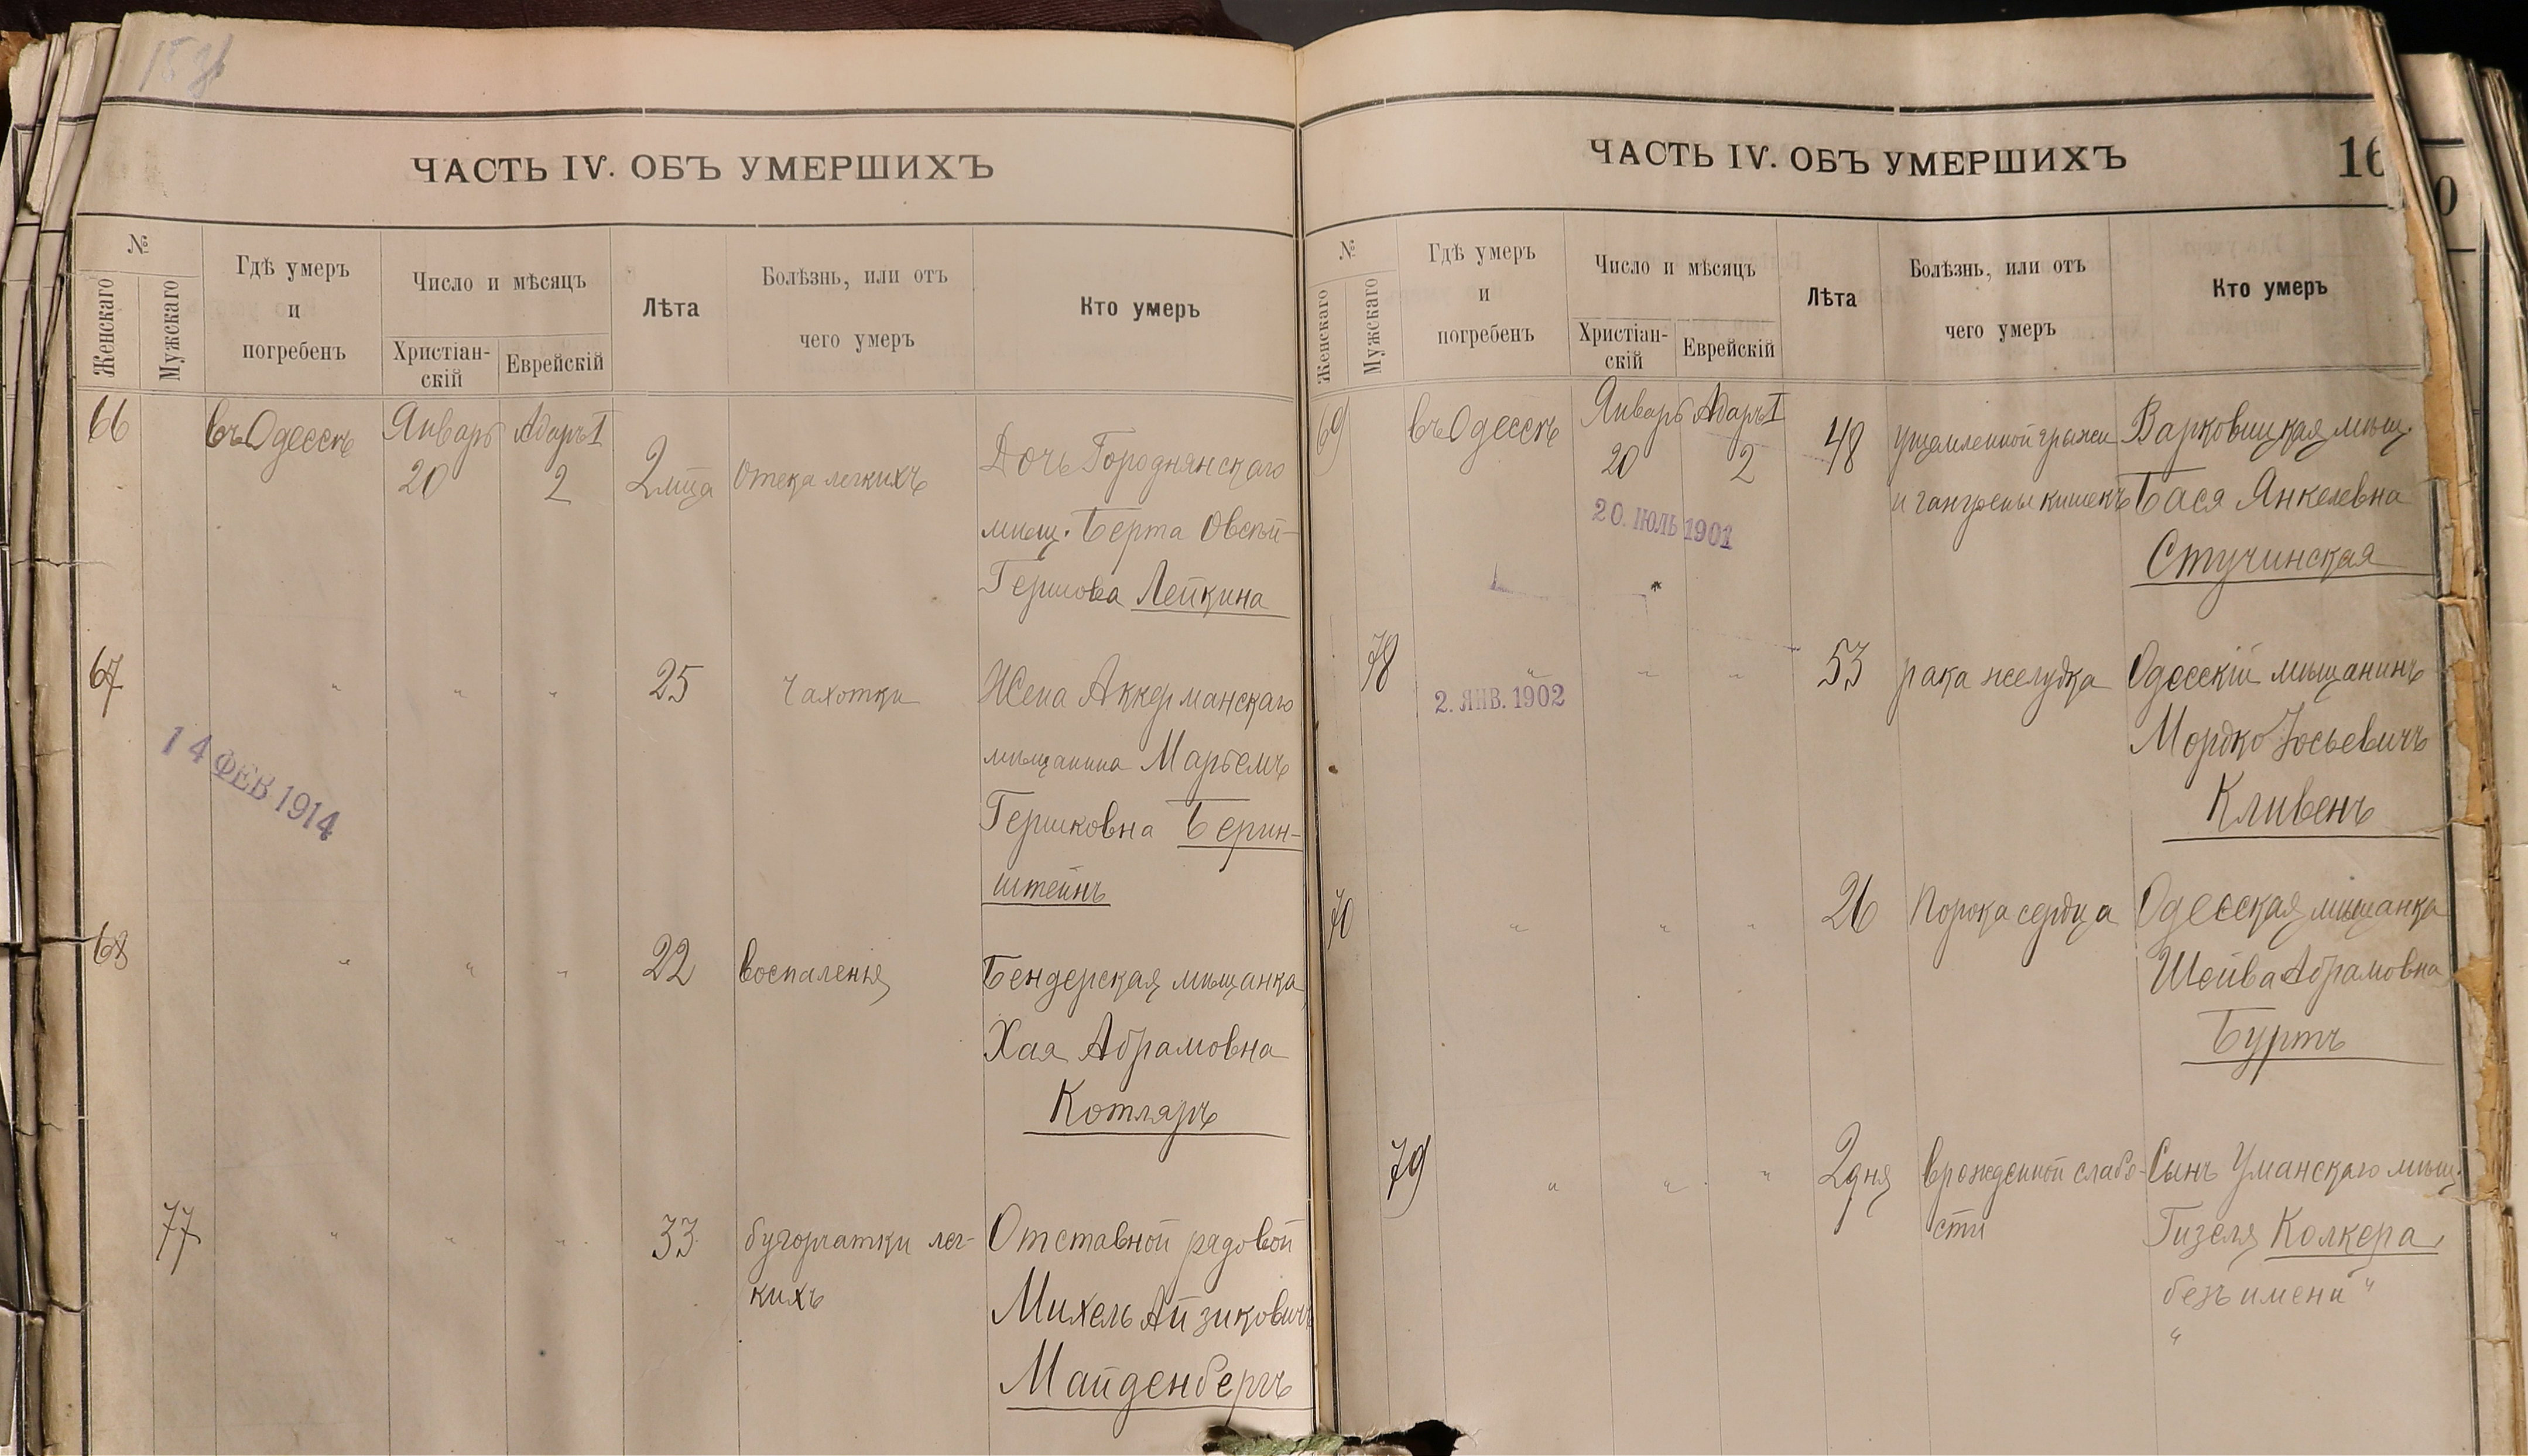 ЧАСТЬ IV. ОБЪ УМЕРШИХЪ
№
Женскаго
Мужскаго
Гдѣ умеръ
и
погребенъ
Число и мѣсяцъ
Христіан-
скій
Еврейскій
Лѣта
Болѣзнь, или отъ
чего умеръ
Кто умеръ
66
въ Одессѣ
Январь
20
Адаръ I
2
2 мѣца
Отека легкихъ
Дочь Городнянскаго
мѣщ. Берта Овсѣй-
Гершова Лейкина
67
"
"
"
25
Чахотки
Жена Аккерманскаго
мѣщанина Марьемъ
Гершковна Берин-
штейнъ
14 ФЕВ 1914
68
"
"
"
22
воспаленія
Бендерская мѣщанка
Хая Абрамовна
Котляръ
77
"
"
"
33
бугорчатки лег-
кихъ
Отставной рядовой
Михель Айзиковичъ
Майденбергъ
ЧАСТЬ IV. ОБЪ УМЕРШИХЪ
16
№
Женскаго
Мужскаго
Гдѣ умеръ
и
погребенъ
Число и мѣсяцъ
Христіан-
скій
Еврейскій
Лѣта
Болѣзнь, или отъ
чего умеръ
Кто умеръ
69
въ Одессѣ
Январь
20
Адаръ I
2
48
ущемленной грыжи
и гангрены кишекъ
Варковицкая мѣщ.
Бася Янкелевна
Стучинская
20. ІЮЛЬ 1901
78
"
"
"
53
рака желудка
Одесскій мѣщанинъ
Мордко Іосьевичъ
Кливенъ
2. ЯНВ. 1902
70
"
"
"
26
Порока сердца
Одесская мѣщанка
Шейва Абрамовна
Буртъ
79
"
"
"
2 дня
врожденной слабо-
сти
Сынъ Уманскаго мѣщ.
Гизеля Колкера,
безъ имени "
"